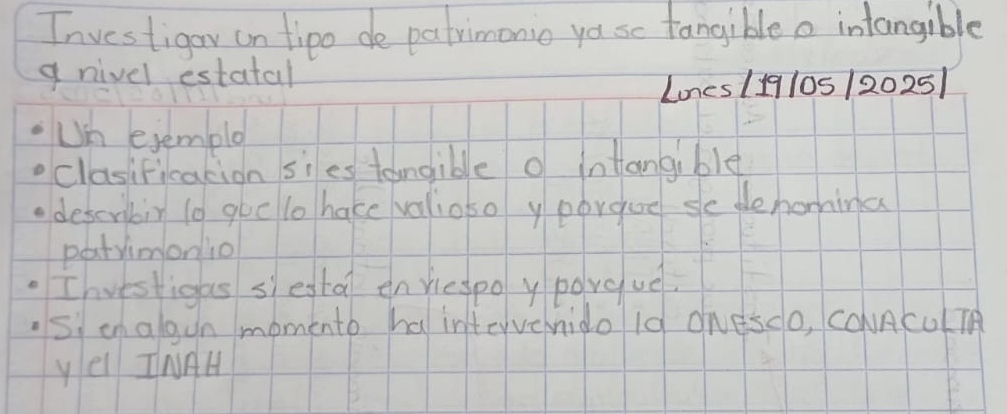 Investigar un tipo de patrimonio ya se tangible o intangible
a nivel estatal
Lunes/19/05/2025/
• Un ejemplo
• Clasificación si es tangible o intangible
• describir lo que lo hace valioso y porque se denomina
patrimonio
• Investigas si está en riespo y porque.
• Si en algun momento ha intervenido la ONESCO, CONACULTA
y el INAH